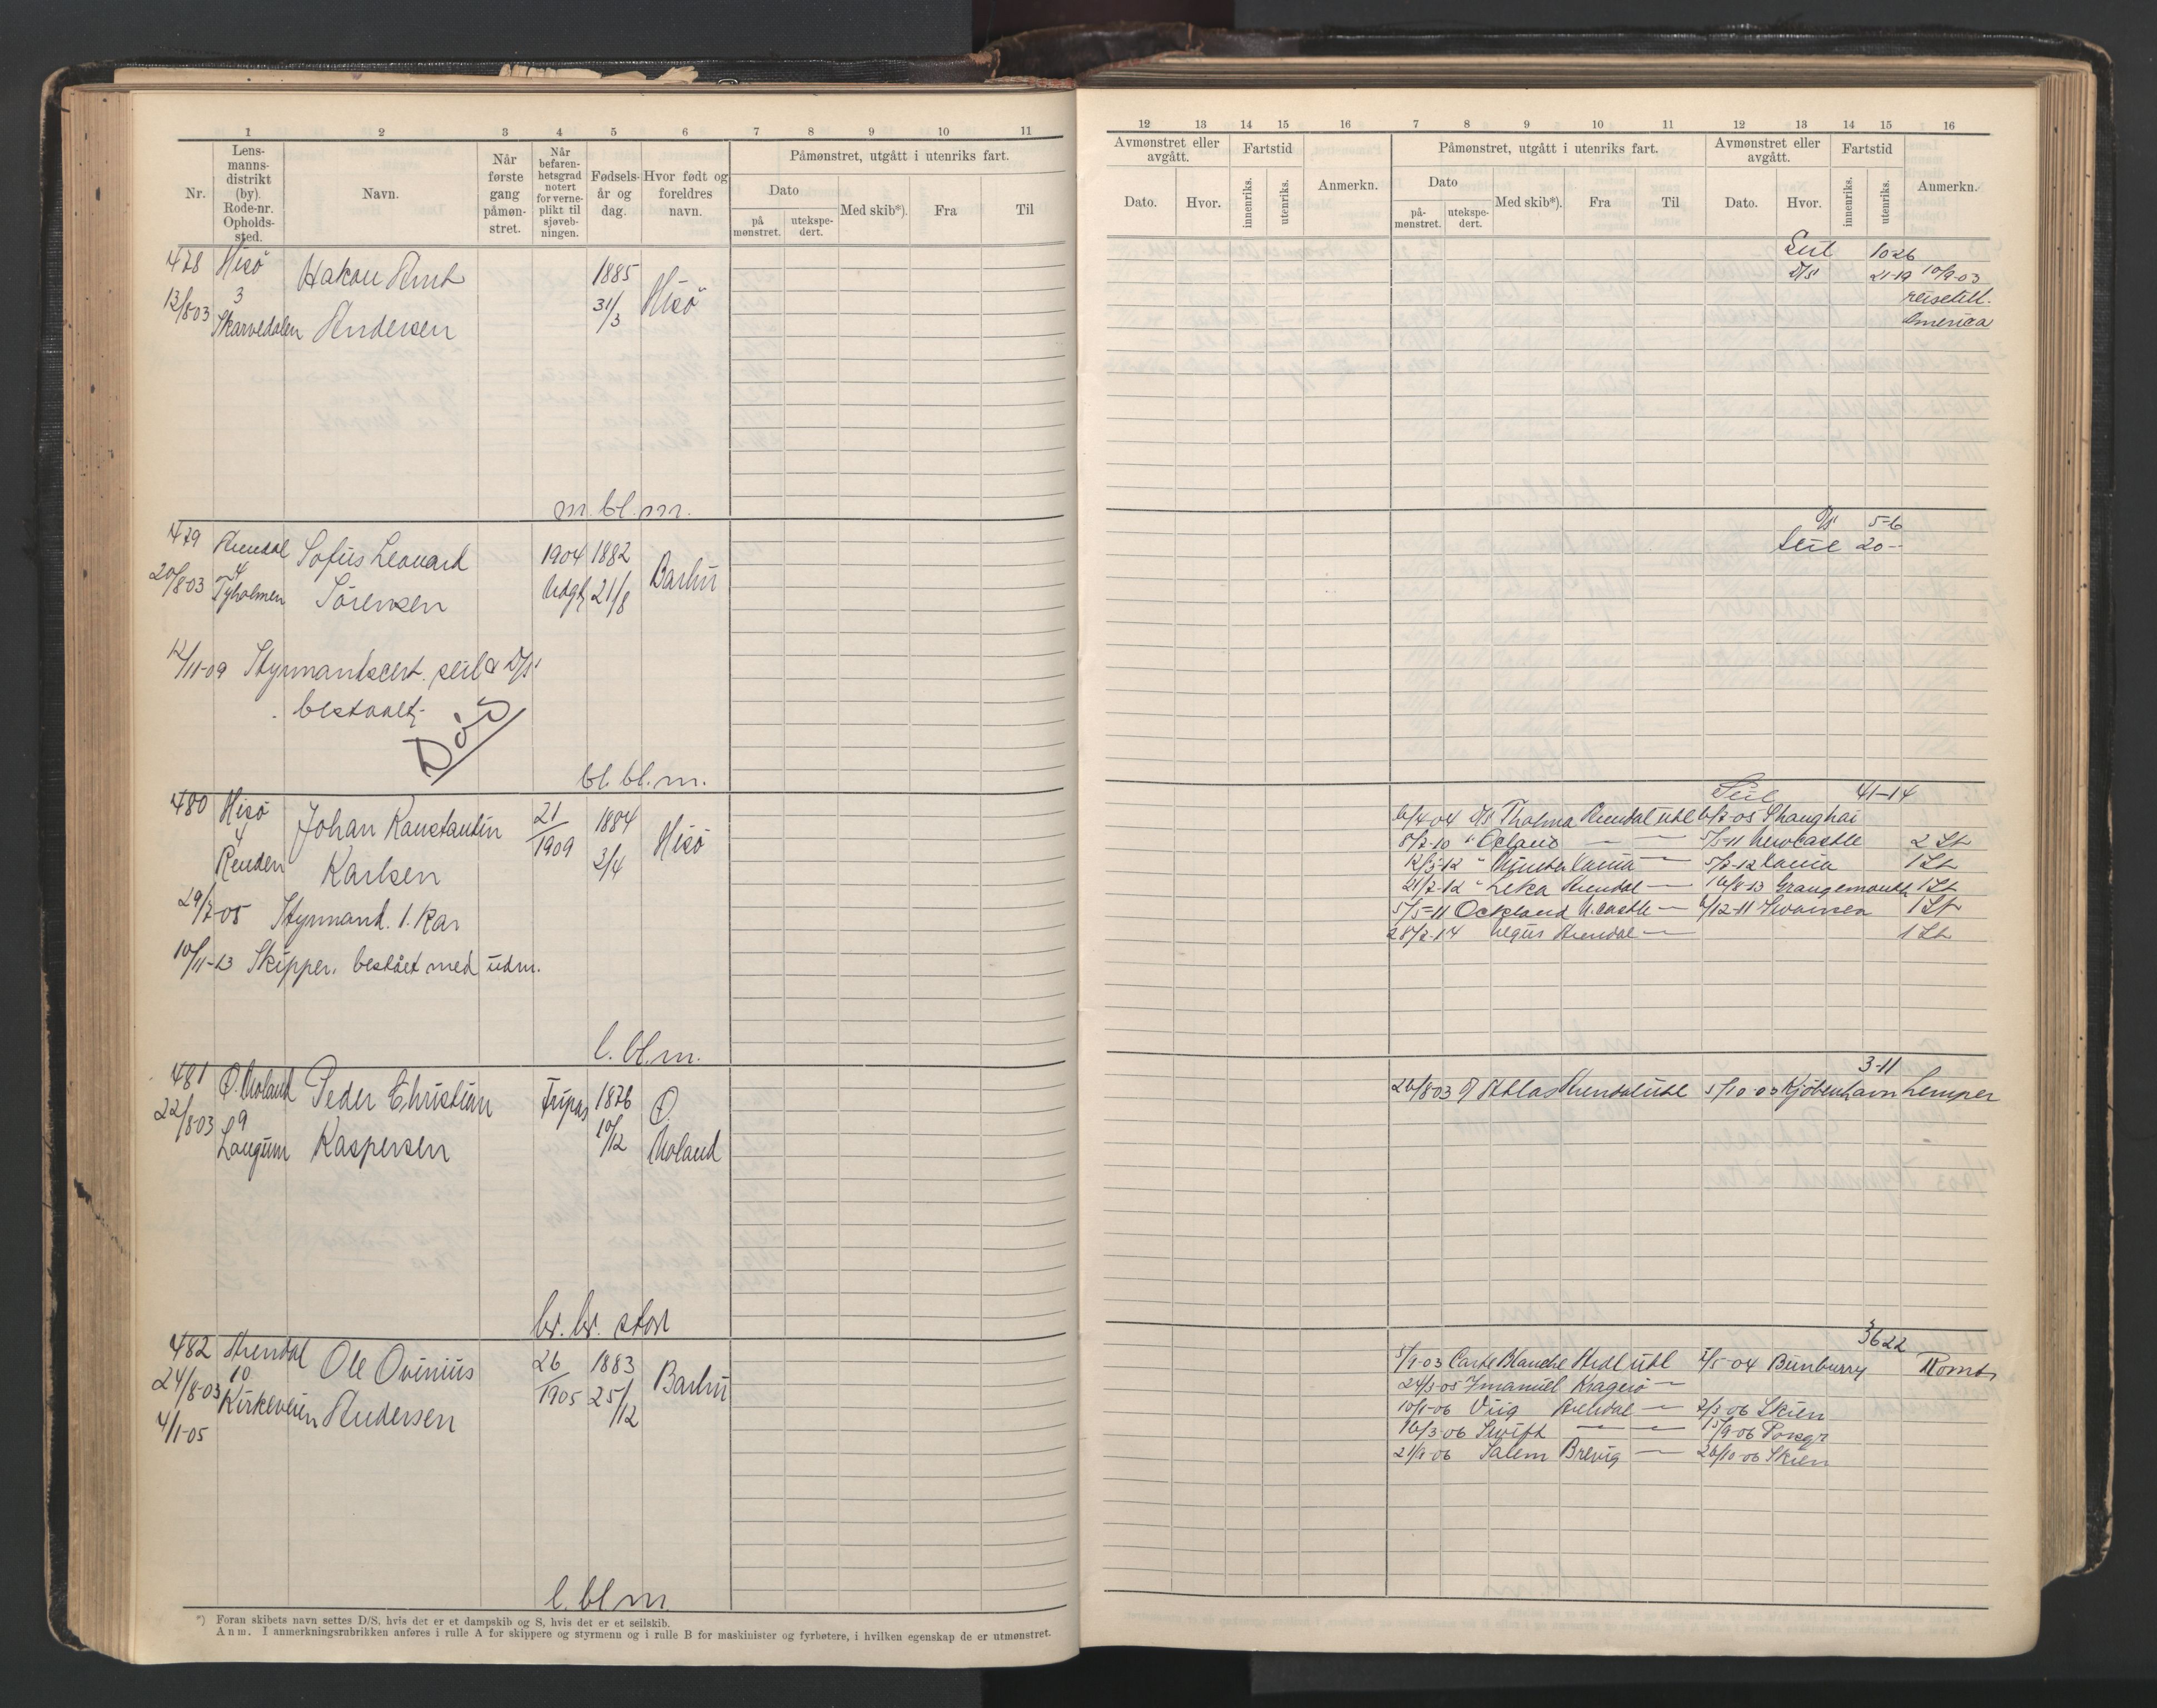 1 2 3 4 5 6 7 8 9 10 11
Nr.
Lens-
manns-
distrikt
(by).
Rode-nr.
Opholds-
sted.
Navn.
Når
første
gang
påmøn-
stret.
Når
befaren-
hetsgrad
notert
for verne-
plikt til
sjøveb-
ningen.
Fødsels-
år og
dag.
Hvor født og
foreldres
navn.
Påmønstret, utgått i utenriks fart.
Dato
på
mønstret.
utekspe-
dert.
Med skib*).
Fra
Til
478 Hisö Hakon Arnt 1885 Hisö
13/8-03 3 31/3
Skarvedalen Andersen
m. bl. m.
479 Arendal Sofus Leonard 1904 1882 Barbu
20/8-03 4
Tyholmen Sörensen Udgt 21/8
12/11-09 Styrmandscert. seil & D/S
bestaalt
Död
bl. bl. m.
480 Hisö Johan Konstantin 21/1909 1884 Hisö
4
Renden Karlsen 3/4
29/7-05 Styrmand. 1. Kar
10/11-13 Skipper. bestået med udm.
l. bl. m.
481 Ö. Moland Peder Christian Fripas 1876 Ö.
22/8-03 9 10/12 Moland
Langum Kaspersen
br. br. stor
482 Arendal Ole Ovinius 26/1905 1883 Barbu
24/8-03 10 25/12
Kirkeveien Andersen
4/1-05
l. bl m
*) Foran skibets navn settes D/S, hvis det er et dampskib og S, hvis det er et seilskib.
Anm. I anmerkningsrubrikken anføres i rulle A for skippere og styrmenn og i rulle B for maskinister og fyrbøtere, i hvilken egenskap de er utmønstret.
12 13 14 15 16 7 8 9 10 11 12 13 14 15 16
Avmønstret eller
avgått.
Dato.
Hvor.
Fartstid
innenriks.
utenriks.
Anmerkn.
Påmønstret, utgått i utenriks fart.
Dato
på-
mønstret.
utekspe-
dert.
Med skib*).
Fra
Til
Avmønstret eller
avgått.
Dato.
Hvor.
Fartstid
innenriks.
utenriks.
Anmerkn.
Seil 10-26
D/S 21-19 10/9-03
reisetill.
America
D/S 5-6
Seil 20--
Seil 41-14
16/4-04 D/S Tholma Arendal utl 6/7-05 Shanghai
8/2-10 " Ocland — — 5/5-11 Newcastle 2 St
12/3-12 " — 5/7-12 1 St
21/7-12 " Leka Arendal — 16/8-13 Grangemouth 1 St
5/5-11 Ockland N.castle — 6/12-11 Swansea 1 St
28/2-14 Arendal — 1 St
3-11
26/8-03 Atlas Arendal utl 5/10-03 Kjöbenhavn Lemper
3622
5/9-03 Carte Blanche Ardl utl 7/5-04 Bunburry Romt
24/3-05 Imanuel Kragerö —
10/1-06 Viig Arendal — 2/3-06 Skien
16/3-06 Swift — — 15/9-06 Porsgr
21/9-06 Salem Brevig — 26/10-06 Skien